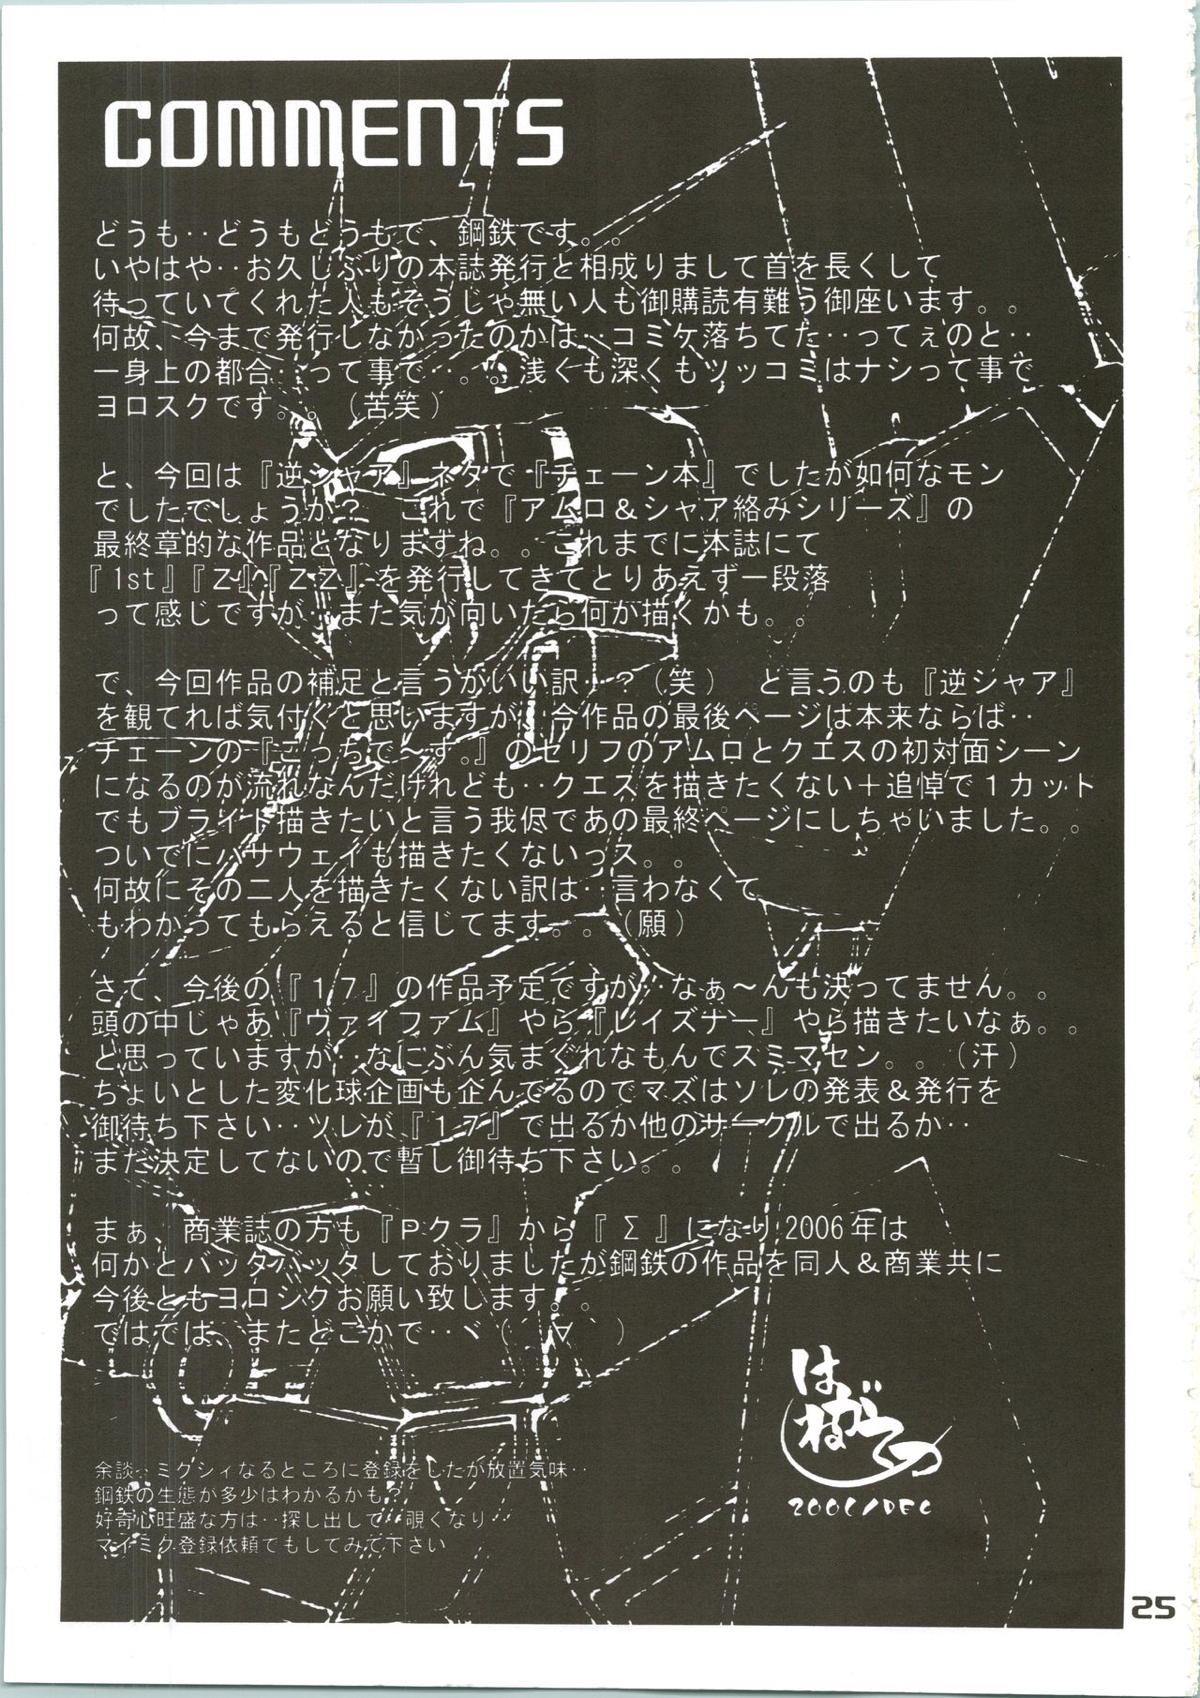 COMMENTS
どうも‥どうもどうもで、鋼鉄です。。
いやはや‥お久しぶりの本誌発行と相成りまして首を長くして
待っていてくれた人もそうじゃ無い人も御購読有難う御座います。。
何故、今まで発行しなかったのかは‥コミケ落ちてた‥ってぇのと‥
一身上の都合‥って事で‥。。浅くも深くもツッコミはナシって事で
ヨロスクです。。(苦笑)
と、今回は『逆シャア』ネタで『チェーン本』でしたが如何なモン
でしたでしょうか? これで『アムロ&シャア絡みシリーズ』の
最終章的な作品となりますね。。これまでに本誌にて
『1st』『Z』『ZZ』を発行してきてとりあえず一段落
って感じですが‥また気が向いたら何か描くかも。。
で、今回作品の補足と言うかいい訳‥?(笑) と言うのも『逆シャア』
を観てれば気付くと思いますが、今作品の最後ページは本来ならば‥
チェーンの『こっちで〜す。』のセリフのアムロとクエスの初対面シーン
になるのが流れなんだけれども‥クエスを描きたくない+追悼で1カット
でもブライト描きたいと言う我侭であの最終ページにしちゃいました。。
ついでにハサウェイも描きたくないっス。。
何故にその二人を描きたくない訳は‥言わなくて
もわかってもらえると信じてます。。(願)
さて、今後の『17』の作品予定ですが‥なぁ〜んも決ってません。。
頭の中じゃあ『ヴァイファム』やら『レイズナー』やら描きたいなぁ。。
と思っていますが‥なにぶん気まぐれなもんでスミマセン。。(汗)
ちょいとした変化球企画も企んでるのでマズはソレの発表&発行を
御待ち下さい‥ソレが『17』で出るか他のサークルで出るか‥
まだ決定してないので暫し御待ち下さい。。
まぁ、商業誌の方も『Pクラ』から『Σ』になり2006年は
何かとバッタバッタしておりましたが鋼鉄の作品を同人&商業共に
今後ともヨロシクお願い致します。。
ではでは、またどこかで‥ヾ(´∀`)
はがねてつ
2006/DEC
余談‥ミクシィなるところに登録をしたが放置気味‥
鋼鉄の生態が多少はわかるかも?
好奇心旺盛な方は‥探し出して‥覗くなり‥
マイミク登録依頼でもしてみて下さい
25